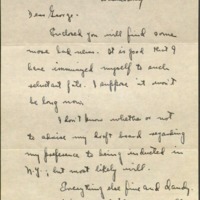 Dear George,
Enclosed you will find some
more bad news. It is good that I
have immunized myself to such
reluctant fate. I suppose it won't
be long now.
I don't know whether or not
to advise my draft board regarding
my preference to being inducted in
N.Y.; but most likely will.
Everything else fine and dandy.